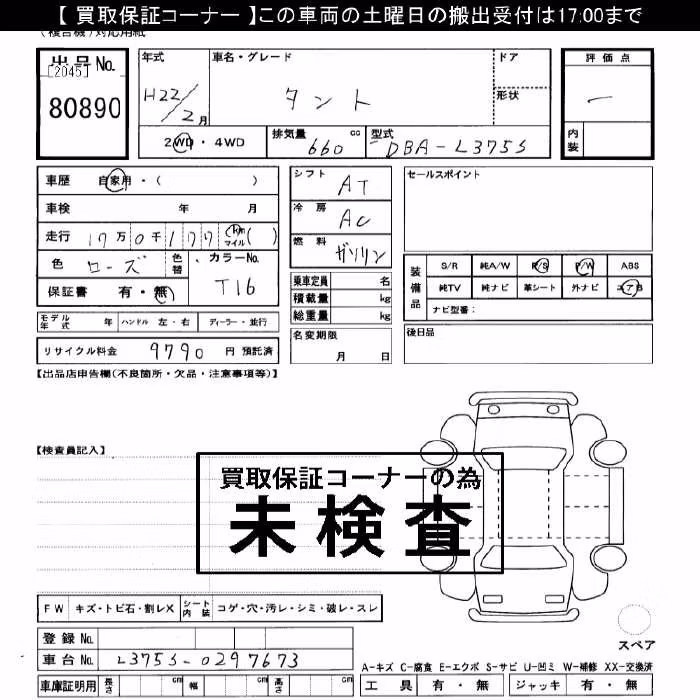 【 買取保証コーナー 】この車両の土曜日の搬出受付は17:00まで
(複合機)対応用紙
出品No.
[2045]
80890
年式
H22/2月
車名・グレード
タント
ドア
形状
評価点
―
内装
2WD・4WD
排気量
660
cc
型式
DBA-L375S
車歴 自家用・( )
車検 年 月
走行 17万0千177 km マイル( )
色 ローズ 色替 カラーNo. T16
保証書 有・無
シフト AT
冷房 AC
燃料 ガソリン
乗車定員 名
積載量 kg
総重量 kg
名変期限
月 日
セールスポイント
装備品
S/R 純A/W P/S P/W ABS
純TV 純ナビ 革シート 外ナビ エアB
ナビ型番:
後日品
モデル年式 年 ハンドル 左・右 ディーラー・並行
リサイクル料金 9790 円 預託済
【出品店申告欄(不良箇所・欠品・注意事項等)】
【検査員記入】
買取保証コーナーの為
未検査
FW キズ・トビ石・割レX シート内装 コゲ・穴・汚レ・シミ・破レ・スレ
登録No.
車台No. L375S-0297673
車庫証明用 長さ cm 幅 cm 高さ cm
スペア
A-キズ C-腐食 E-エクボ S-サビ U-凹ミ W-補修 XX-交換済
工具 有・無 ジャッキ 有・無